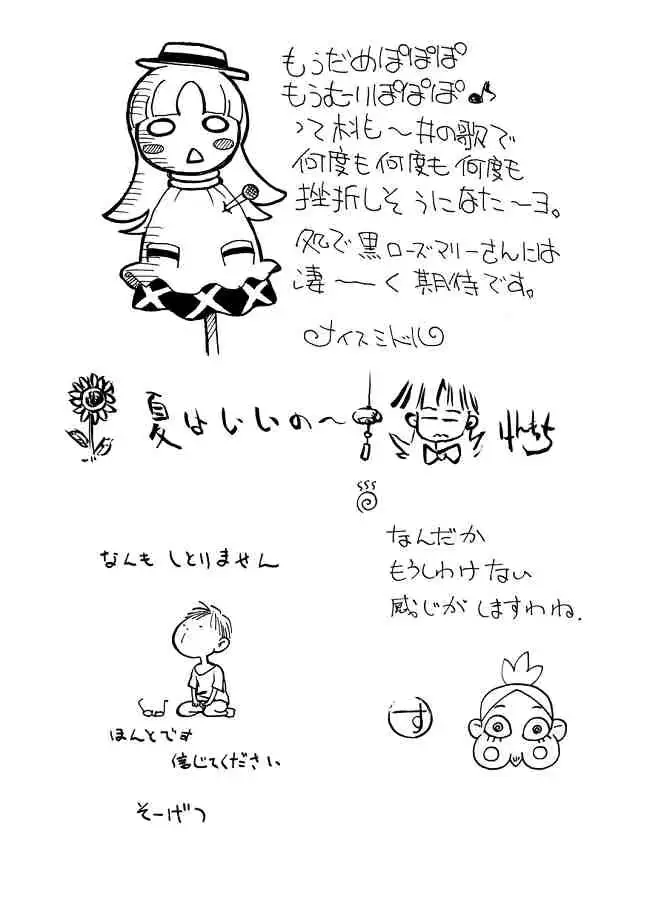 もうだめぽぽぽ
もうむりぽぽぽ♪
って桃〜井の歌で
何度も何度も何度も
挫折しそうになた〜ヨ。
処で黒ローズマリーさんには
凄〜く期待です。
ナイスミドル
夏はいいの〜
けんちち
なんも しとりません
なんだか
もうしわけない
感じがしますわね.
ほんとです
信じてください
す
そーげつ